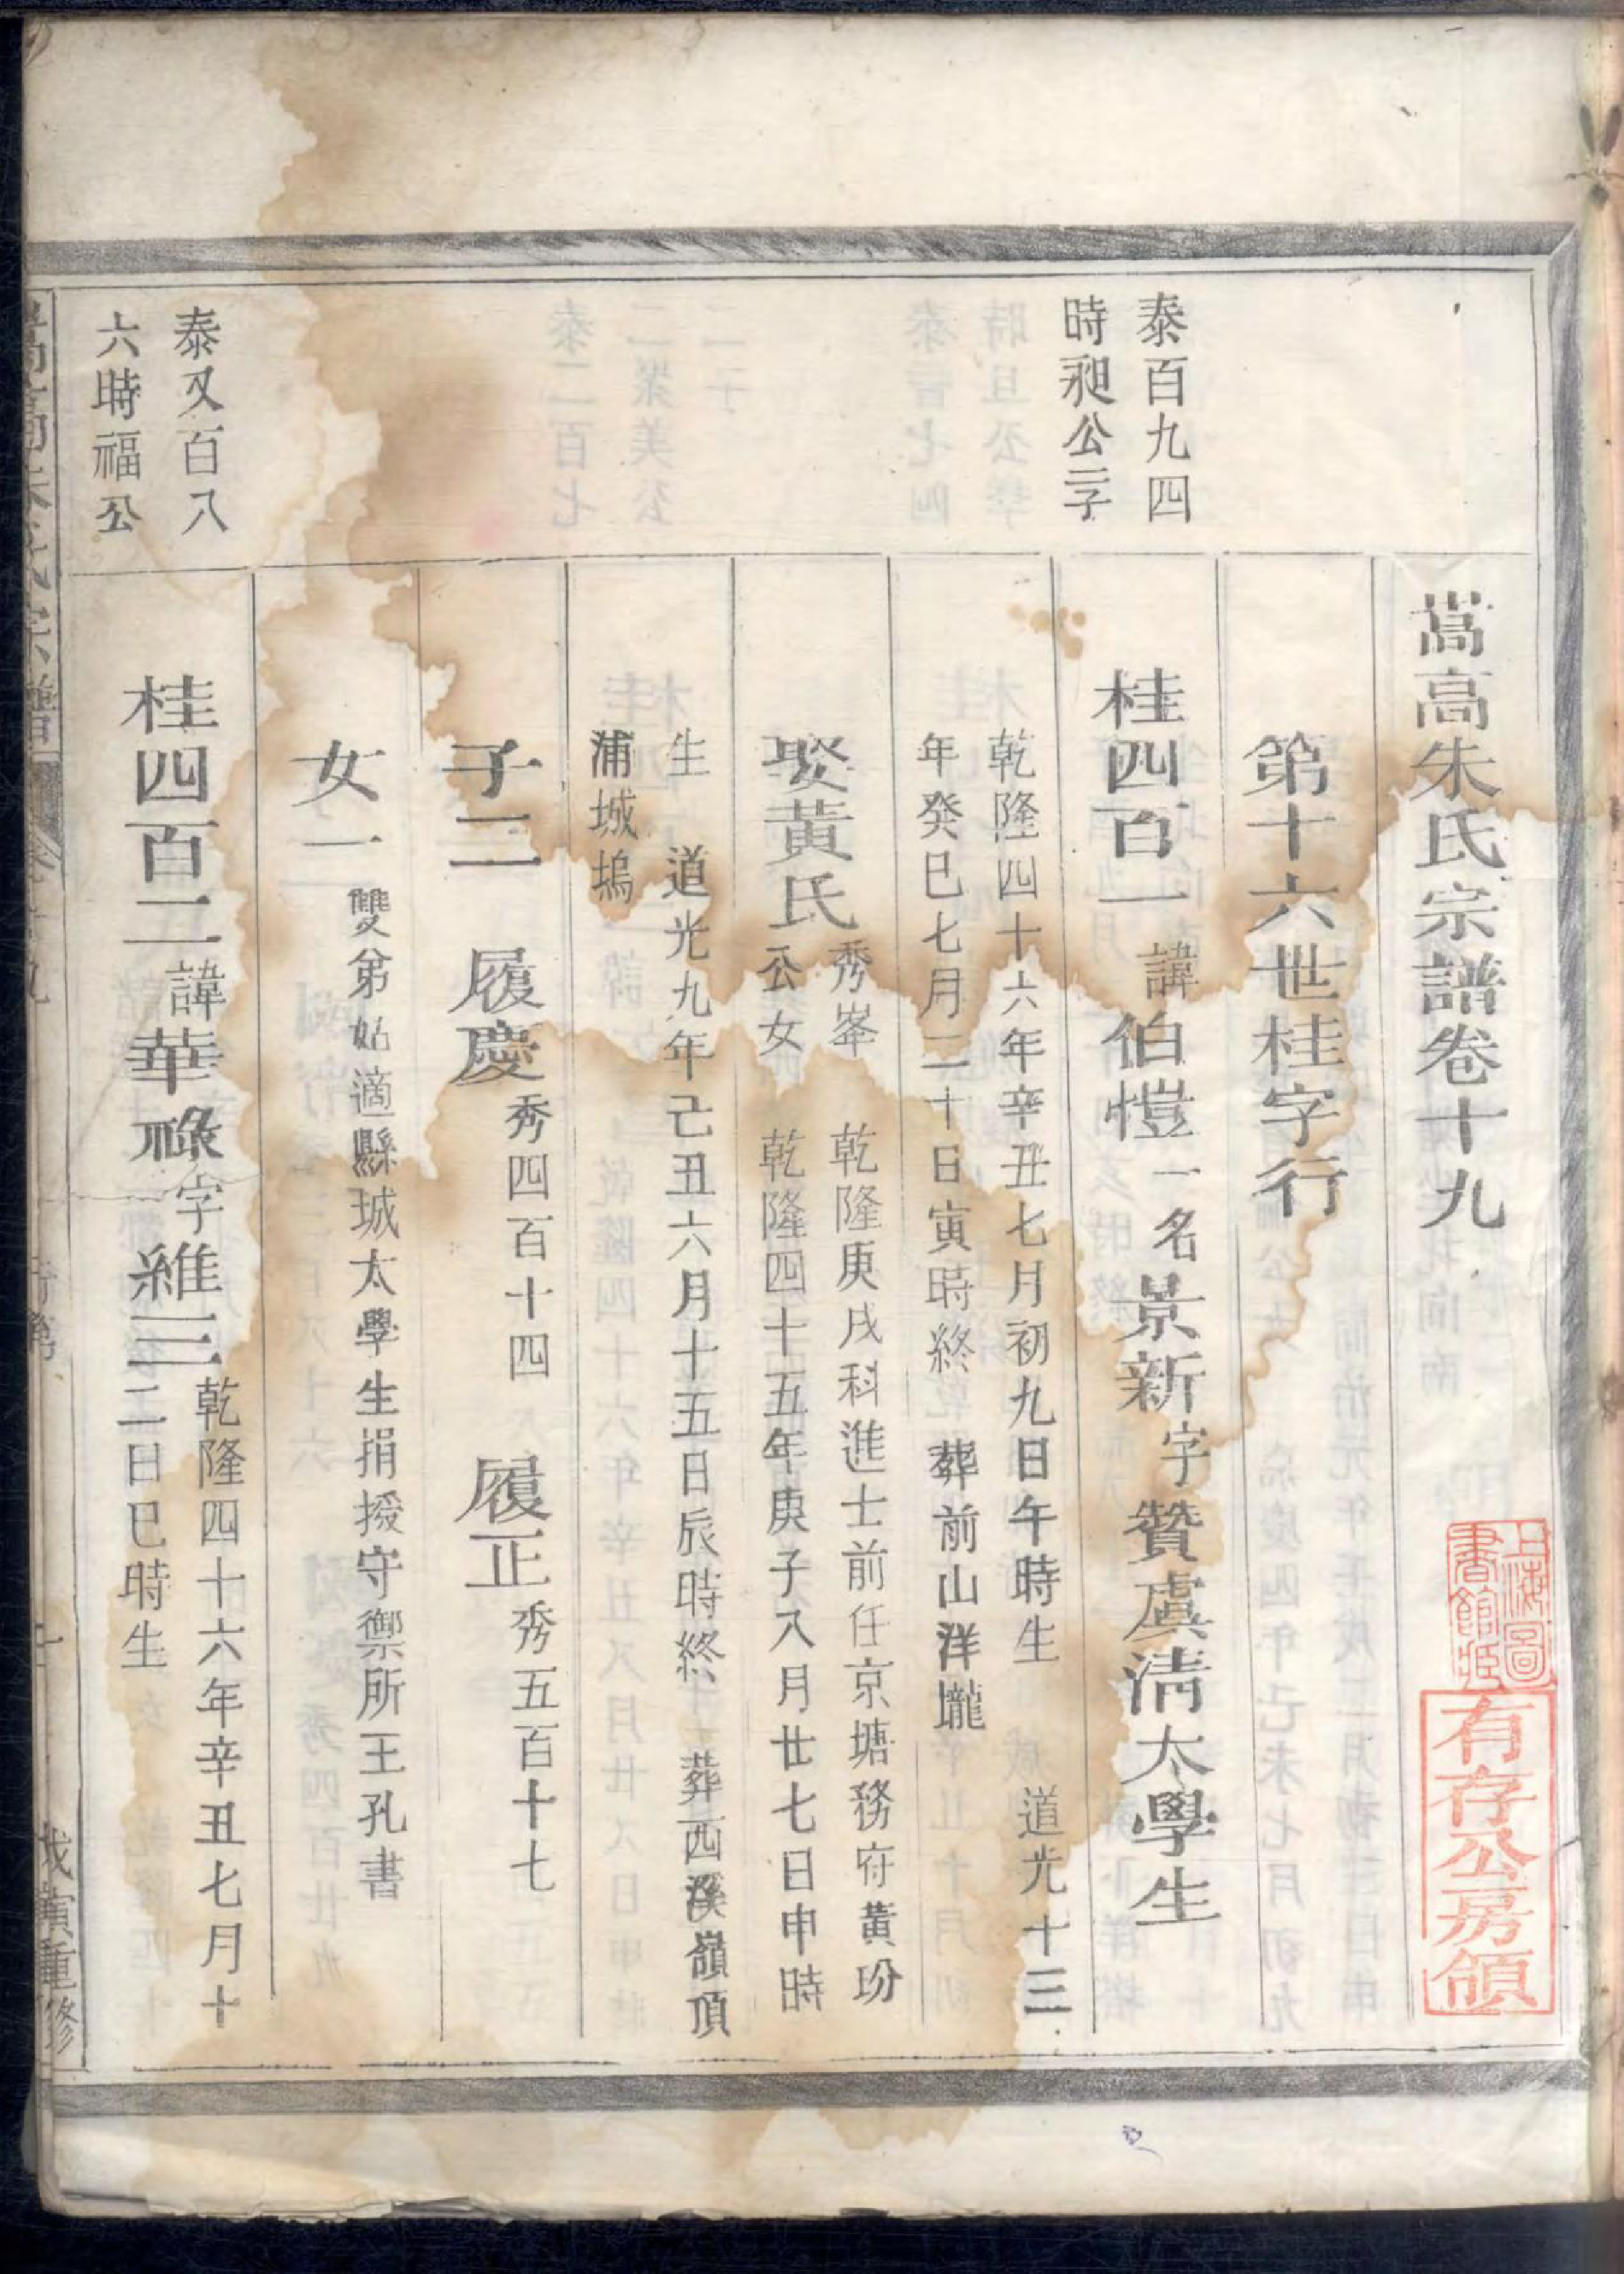 嵩高朱氏宗譜卷十九
上海圖
書館藏
有存公房領
第十六世桂字行
泰百九四
時昶公三子
桂四百一諱伯愷一名景新字贊虞淸太學生
乾隆四十六年辛丑七月初九日午時生 道光十三
年癸巳七月二十日寅時終 葬前山洋壠
娶黃氏秀峯公女
乾隆庚戌科進士前任京塘務府黃玢
乾隆四十五年庚子八月廿七日申時
生 道光九年己丑六月十五日辰時終 葬西溪嶺頂
浦城塢
子二 履慶秀四百十四 履正秀五百十七
女一雙弟姑適縣城太學生捐授守禦所王孔書
泰又百八
六時福公
桂四百二諱華祿字維三
乾隆四十六年辛丑七月十
二日巳時生
戊寅重修